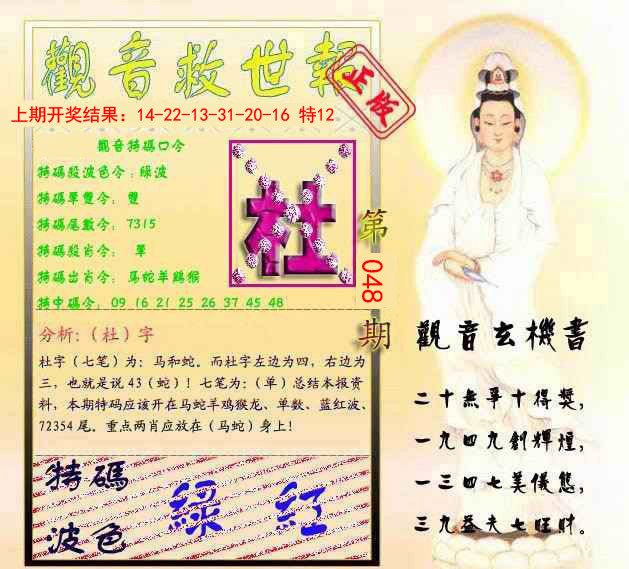 觀音救世報
正版
上期开奖结果：14-22-13-31-20-16 特12
觀音特碼口令
特碼殺波色令：綠波
特碼單雙令： 雙
特碼尾數令： 7315
特碼殺肖令： 單
特碼出肖令： 马蛇羊鷄猴
特中碼令： 09 16 21 25 26 37 45 48
社
第
048
期
分析：（社）字
社字（七笔）为：马和蛇。而社字左边为四，右边为
三，也就是说 43（蛇）！七笔为：（单）总结本报资
料，本期特码应该开在马蛇羊鸡猴龙、单数、蓝红波、
72354 尾。重点两肖应放在（马蛇）身上！
特碼
波色
綠 紅
觀音玄機書
二十無爭十得獎，
一九四九創輝煌，
一三四七美儀態，
三九益夫七旺財。